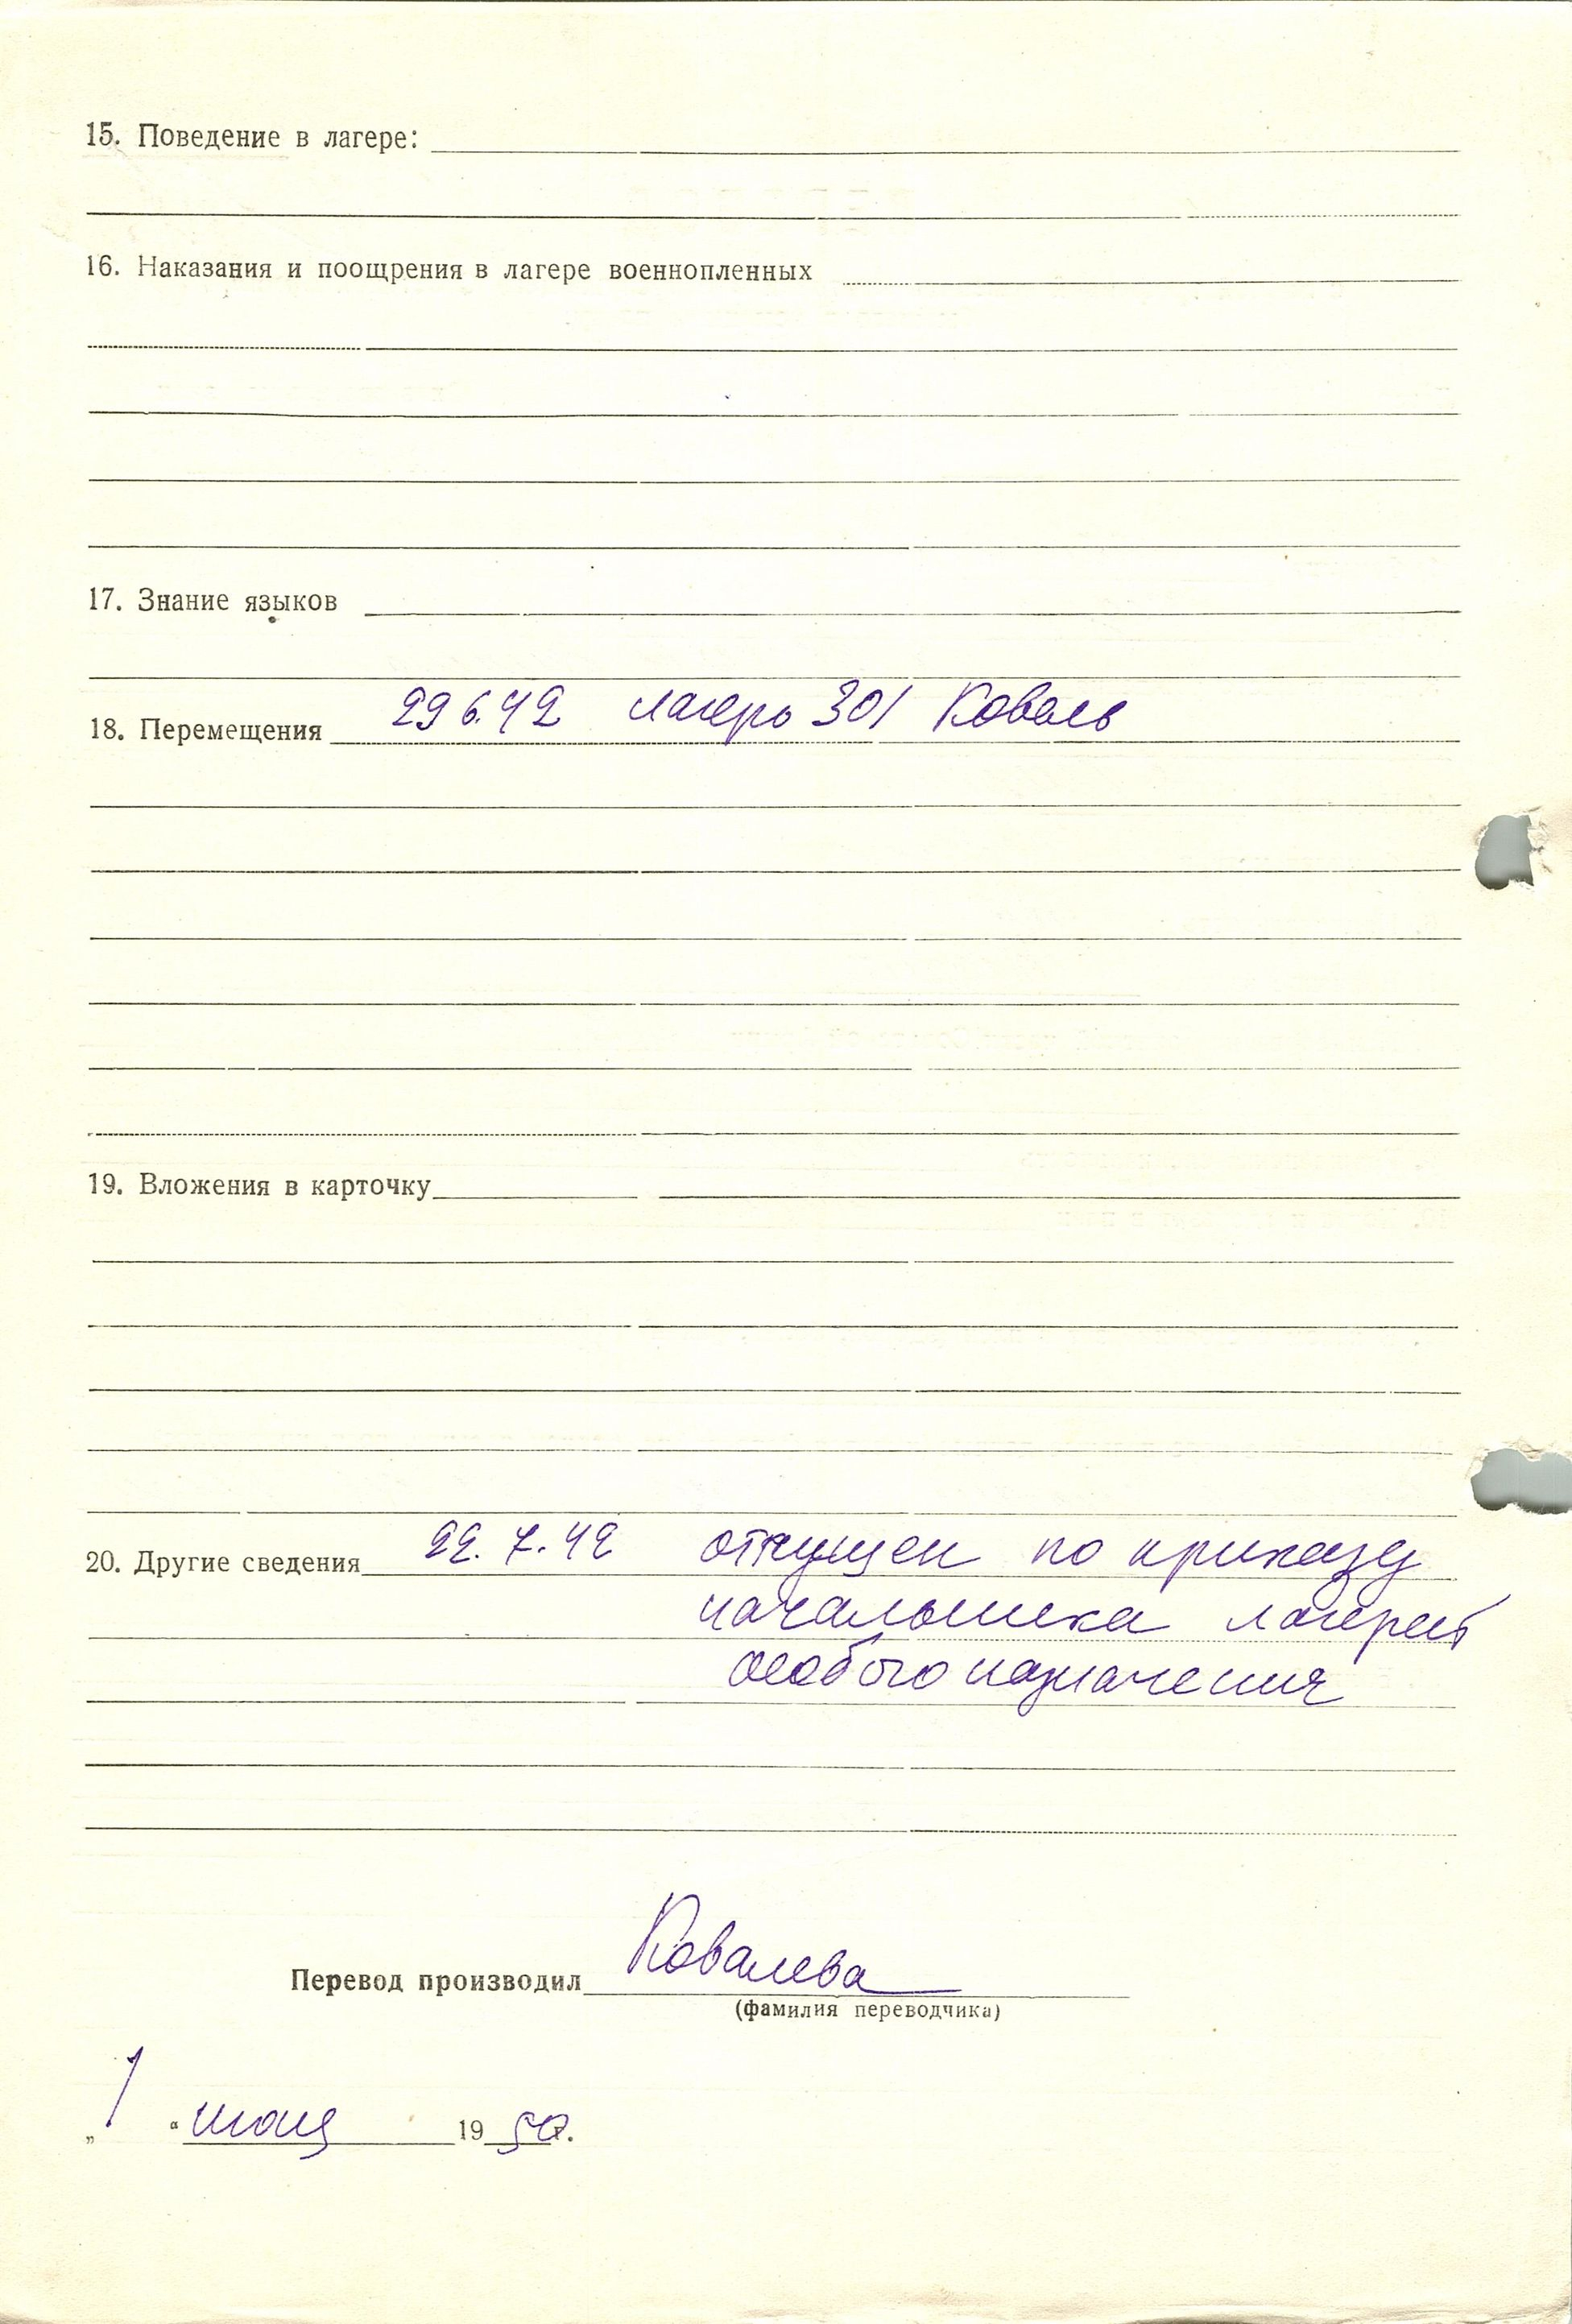 15. Поведение в лагере:
16. Наказания и поощрения в лагере военнопленных
17. Знание языков
18. Перемещения 29 6.42 лагерь 301 Ковель
19. Вложения в карточку
20. Другие сведения 22.7.42 отпущен по приказу
начальника лагерей
особого назначения
Перевод производил Ковалева
(фамилия переводчика)
„1“ июня 1950г.